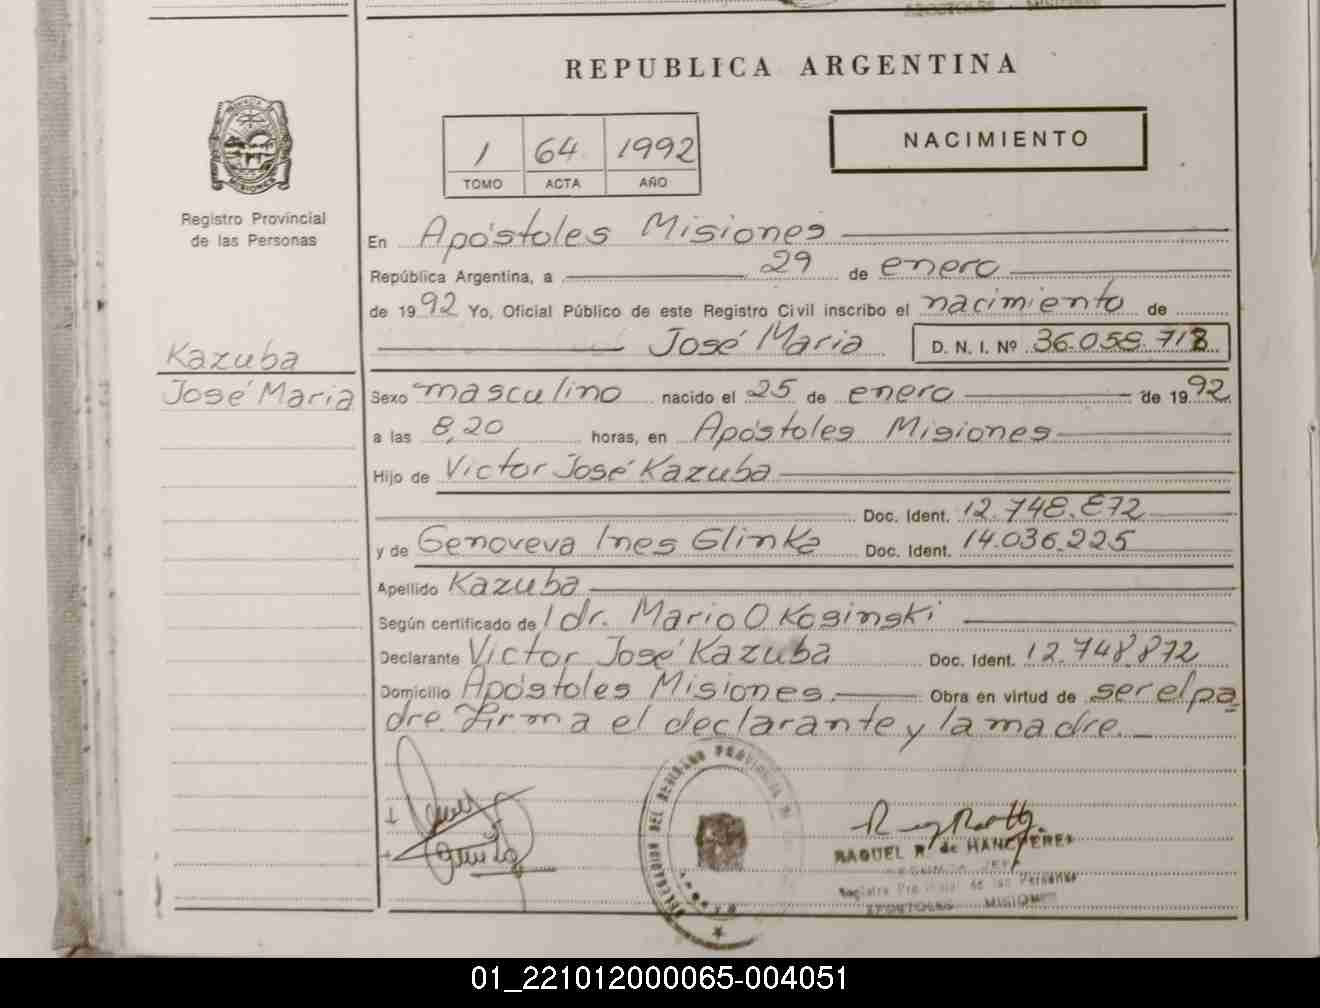 REPUBLICA ARGENTINA
1 64 1992
TOMO ACTA AÑO
NACIMIENTO
Registro Provincial
de las Personas
En Apóstoles Misiones
República Argentina, a 29 de enero
de 1992 Yo, Oficial Público de este Registro Civil inscribo el nacimiento de
José Maria D. N. I. Nº 36.058.718
Kazuba
José Maria
Sexo masculino nacido el 25 de enero de 1992
a las 8,20 horas, en Apóstoles Misiones
Hijo de Victor José Kazuba
Doc. Ident. 12.748.872
y de Genoveva Ines Glinka Doc. Ident. 14.036.225
Apellido Kazuba
Según certificado de l dr. Mario O Kosinski
Declarante Victor José Kazuba Doc. Ident. 12.748.872
Domicilio Apóstoles Misiones. Obra en virtud de ser el pa
dre. Firma el declarante y la madre.
RAQUEL R. de
Registro Provincial de las Personas
APOSTOLES MISIONES
01_221012000065-004051